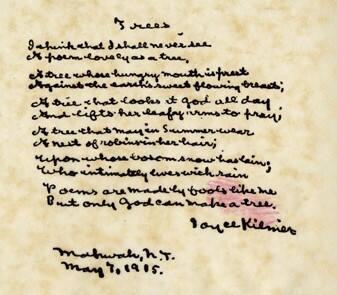 Trees
I think that I shall never see
A poem lovely as a tree.
A tree whose hungry mouth is prest
Against the earth's sweet flowing breast;
A tree that looks at God all day
And lifts her leafy arms to pray;
A tree that may in Summer wear
A nest of robins in her hair;
Upon whose bosom snow has lain;
Who intimately lives with rain
Poems are made by fools like me
But only God can make a tree.
Joyce Kilmer
Mahwah, N.J.
May 7, 1915.